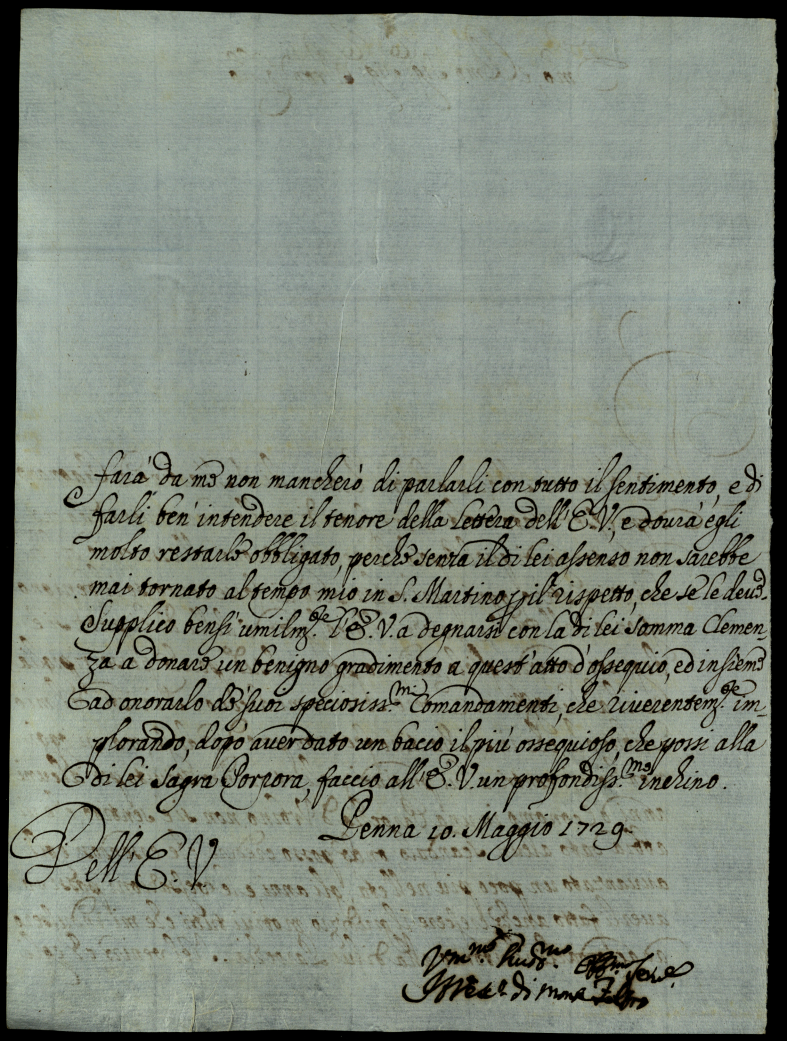 farà da me non mancherò di parlarli con tutto il sentimento, e di
farli ben intendere il tenore della Lettera dell'E.V., e dourà egli
molto restarle obbligato, perche senza il di lei assenso non sarebbe
mai tornato al tempo mio in S. Martino p il rispetto, che se le deue.
Supplico bensi umilm.te l'E.V. a degnarsi con la di lei somma Clemen
za a donare un benigno gradimento a quest'atto d'ossequio, ed insieme
ad onorarlo de suoi speciosiss.mi Comandamenti, che riuerentem.te im-
plorando, dopò auer dato un baccio il più ossequioso, che possi alla
di lei Sagra Porpora, faccio all'E.V. un profondiss.mo inchino.
Penna 10. Maggio 1729
Dell'E.V.
Vm.mo Diu.mo Obb.mo Ser.e
di Monte Feltro